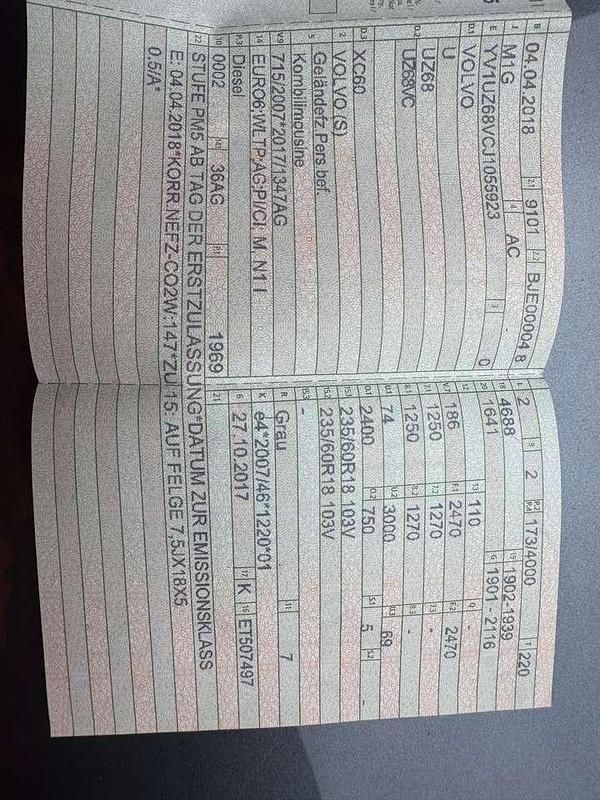 B 04.04.2018 2.1 9101 2.2 BJE00004 8
J M1G 4 AC -
E YV1UZ68VCJ1055923 3 0
D.1 VOLVO
U
D.2 UZ68
UZ68VC
D.3 XC60
2 VOLVO (S)
5 Geländefz.Pers.bef.
Kombilimousine
V.9 715/2007*2017/1347AG
14 EURO6;WLTP;AG;PI/CI, M, N1 I
P.3 Diesel
10 0002 14.1 36AG P.1 1969
L 2 9 2 P.2 P.4 173/4000 T 220
18 4688 19 1902-1939
20 1641 G 1901 - 2116
12 - 13 110 Q -
V.7 186 F.1 2470 F.2 2470
7.1 1250 7.2 1270 7.3 -
8.1 1250 8.2 1270 8.3 -
U.1 74 U.2 3000 U.3 69
O.1 2400 O.2 750 S.1 5 S.2 -
15.1 235/60R18 103V
15.2 235/60R18 103V
15.3 -
R Grau 11 7
K e4*2007/46*1220*01
6 27.10.2017 17 K 16 ET507497
21
22 STUFE PM5 AB TAG DER ERSTZULASSUNG*DATUM ZUR EMISSIONSKLASS
E: 04.04.2018*KORR.NEFZ-CO2W:147*ZU 15: AUF FELGE 7,5JX18X5
0.5/A*